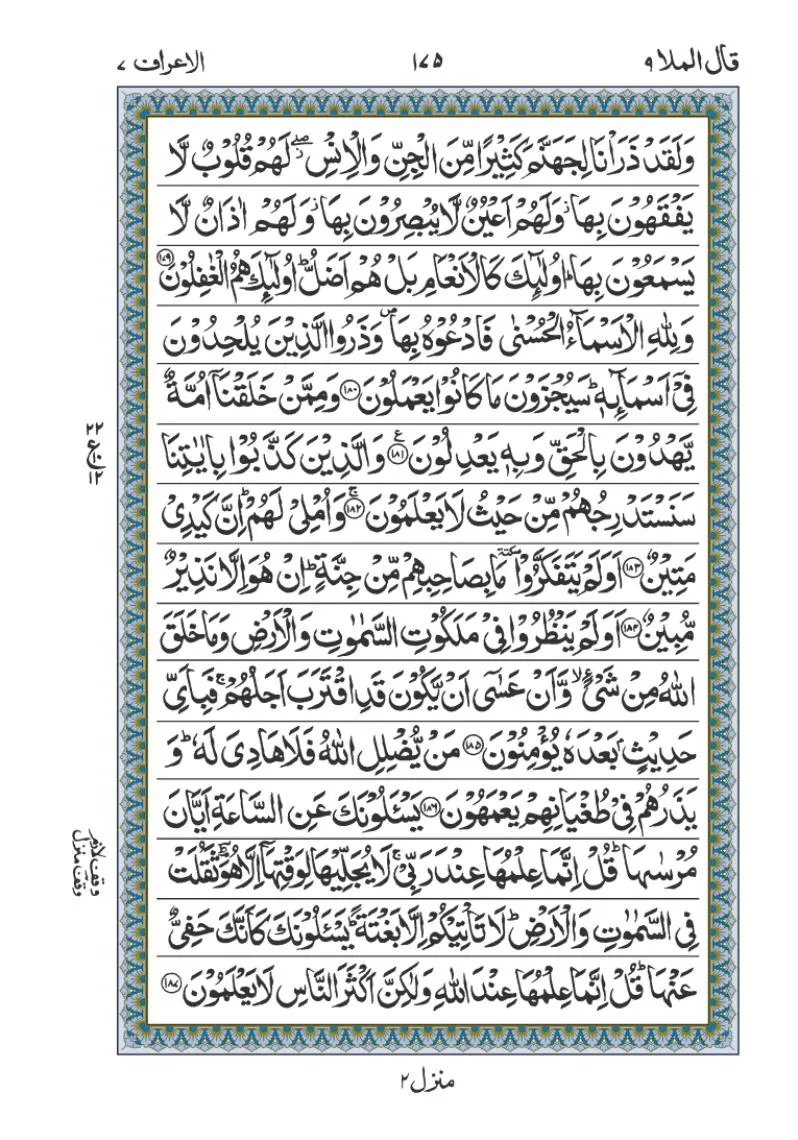 قال الملا ٩
١٧٥
الاعراف ٧
وَلَقَدْ ذَرَاْنَا لِجَهَنَّمَ كَثِيْرًا مِّنَ الْجِنِّ وَالْاِنْسِ ۖ لَهُمْ قُلُوْبٌ لَّا
يَفْقَهُوْنَ بِهَا ؗ وَلَهُمْ اَعْيُنٌ لَّا يُبْصِرُوْنَ بِهَا ؗ وَلَهُمْ اٰذَانٌ لَّا
يَسْمَعُوْنَ بِهَا ؕ اُولٰٓئِكَ كَالْاَنْعَامِ بَلْ هُمْ اَضَلُّ ؕ اُولٰٓئِكَ هُمُ الْغٰفِلُوْنَ ١٧٩
وَلِلّٰهِ الْاَسْمَآءُ الْحُسْنٰى فَادْعُوْهُ بِهَا ۪ وَذَرُوا الَّذِيْنَ يُلْحِدُوْنَ
فِيْٓ اَسْمَآئِهٖ ؕ سَيُجْزَوْنَ مَا كَانُوْا يَعْمَلُوْنَ ١٨٠ وَمِمَّنْ خَلَقْنَآ اُمَّةٌ
يَّهْدُوْنَ بِالْحَقِّ وَبِهٖ يَعْدِلُوْنَ ١٨١ ع وَالَّذِيْنَ كَذَّبُوْا بِاٰيٰتِنَا
سَنَسْتَدْرِجُهُمْ مِّنْ حَيْثُ لَا يَعْلَمُوْنَ ١٨٢ ۚ وَاُمْلِيْ لَهُمْ ؕ اِنَّ كَيْدِيْ
مَتِيْنٌ ١٨٣ اَوَلَمْ يَتَفَكَّرُوْا ٚ مَا بِصَاحِبِهِمْ مِّنْ جِنَّةٍ ؕ اِنْ هُوَ اِلَّا نَذِيْرٌ
مُّبِيْنٌ ١٨٤ اَوَلَمْ يَنْظُرُوْا فِيْ مَلَكُوْتِ السَّمٰوٰتِ وَالْاَرْضِ وَمَا خَلَقَ
اللّٰهُ مِنْ شَيْءٍ ۙ وَّاَنْ عَسٰٓى اَنْ يَّكُوْنَ قَدِ اقْتَرَبَ اَجَلُهُمْ ۚ فَبِاَيِّ
حَدِيْثٍۭ بَعْدَهٗ يُؤْمِنُوْنَ ١٨٥ مَنْ يُّضْلِلِ اللّٰهُ فَلَا هَادِيَ لَهٗ ؕ وَ
يَذَرُهُمْ فِيْ طُغْيَانِهِمْ يَعْمَهُوْنَ ١٨٦ يَسْـَٔلُوْنَكَ عَنِ السَّاعَةِ اَيَّانَ
مُرْسٰىهَا ؕ قُلْ اِنَّمَا عِلْمُهَا عِنْدَ رَبِّيْ ۚ لَا يُجَلِّيْهَا لِوَقْتِهَآ اِلَّا هُوَ ؔؕ ثَقُلَتْ
فِي السَّمٰوٰتِ وَالْاَرْضِ ؕ لَا تَاْتِيْكُمْ اِلَّا بَغْتَةً ؕ يَسْـَٔلُوْنَكَ كَاَنَّكَ حَفِيٌّ
عَنْهَا ؕ قُلْ اِنَّمَا عِلْمُهَا عِنْدَ اللّٰهِ وَلٰكِنَّ اَكْثَرَ النَّاسِ لَا يَعْلَمُوْنَ ١٨٧
٢٢
ع
١٢
وقف لازم
وقف منزل
منزل ٢